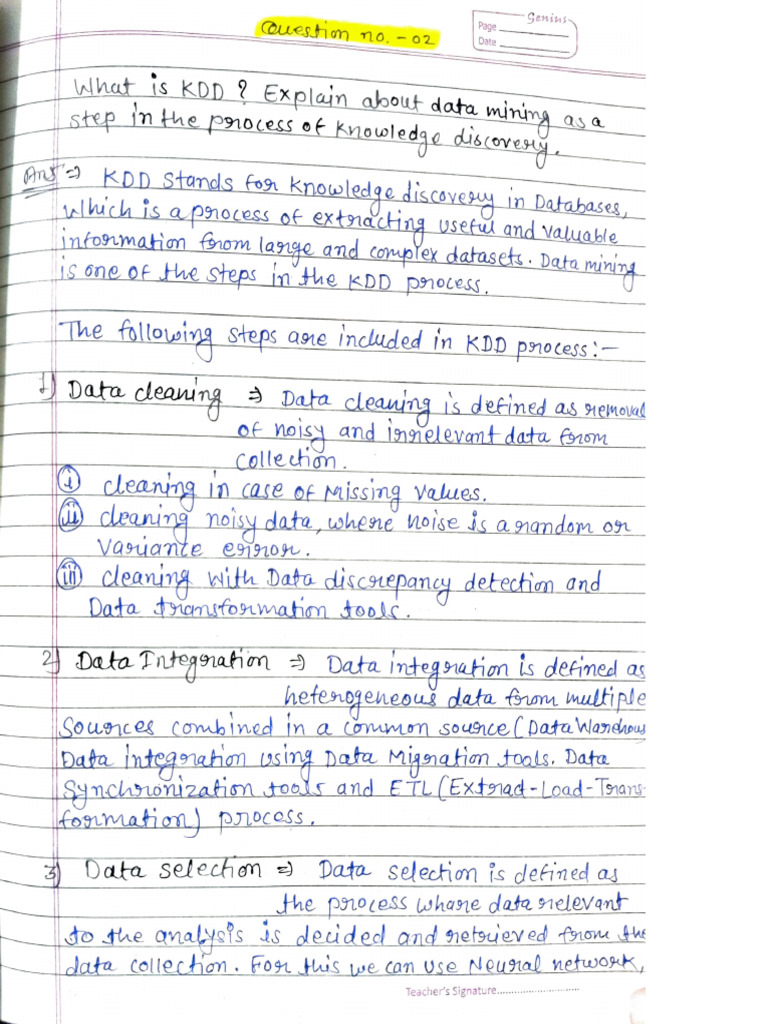 Question no. - 02
Genius
Page
Date
What is KDD ? Explain about data mining as a
step in the process of knowledge discovery.
Ans ⇒ KDD stands for knowledge discovery in Databases,
which is a process of extracting useful and valuable
information from large and complex datasets. Data mining
is one of the steps in the KDD process.
The following steps are included in KDD process:-
1) Data cleaning ⇒ Data cleaning is defined as removal
of noisy and irrelevant data from
collection.
(i) cleaning in case of Missing values.
(ii) cleaning noisy data, where noise is a random or
variante error.
(iii) cleaning with Data discrepancy detection and
Data transformation tools.
2) Data Integration ⇒ Data integration is defined as
heterogeneous data from multiple
sources combined in a common source (Data Warehous
Data integration using Data Migration tools. Data
Synchronization tools and ETL (Extrad-Load-Trans-
formation) process.
3) Data selection ⇒ Data selection is defined as
the process whare data relevant
to the analysis is decided and retrieved from the
data collection. For this we can use Neural network,
Teacher's Signature